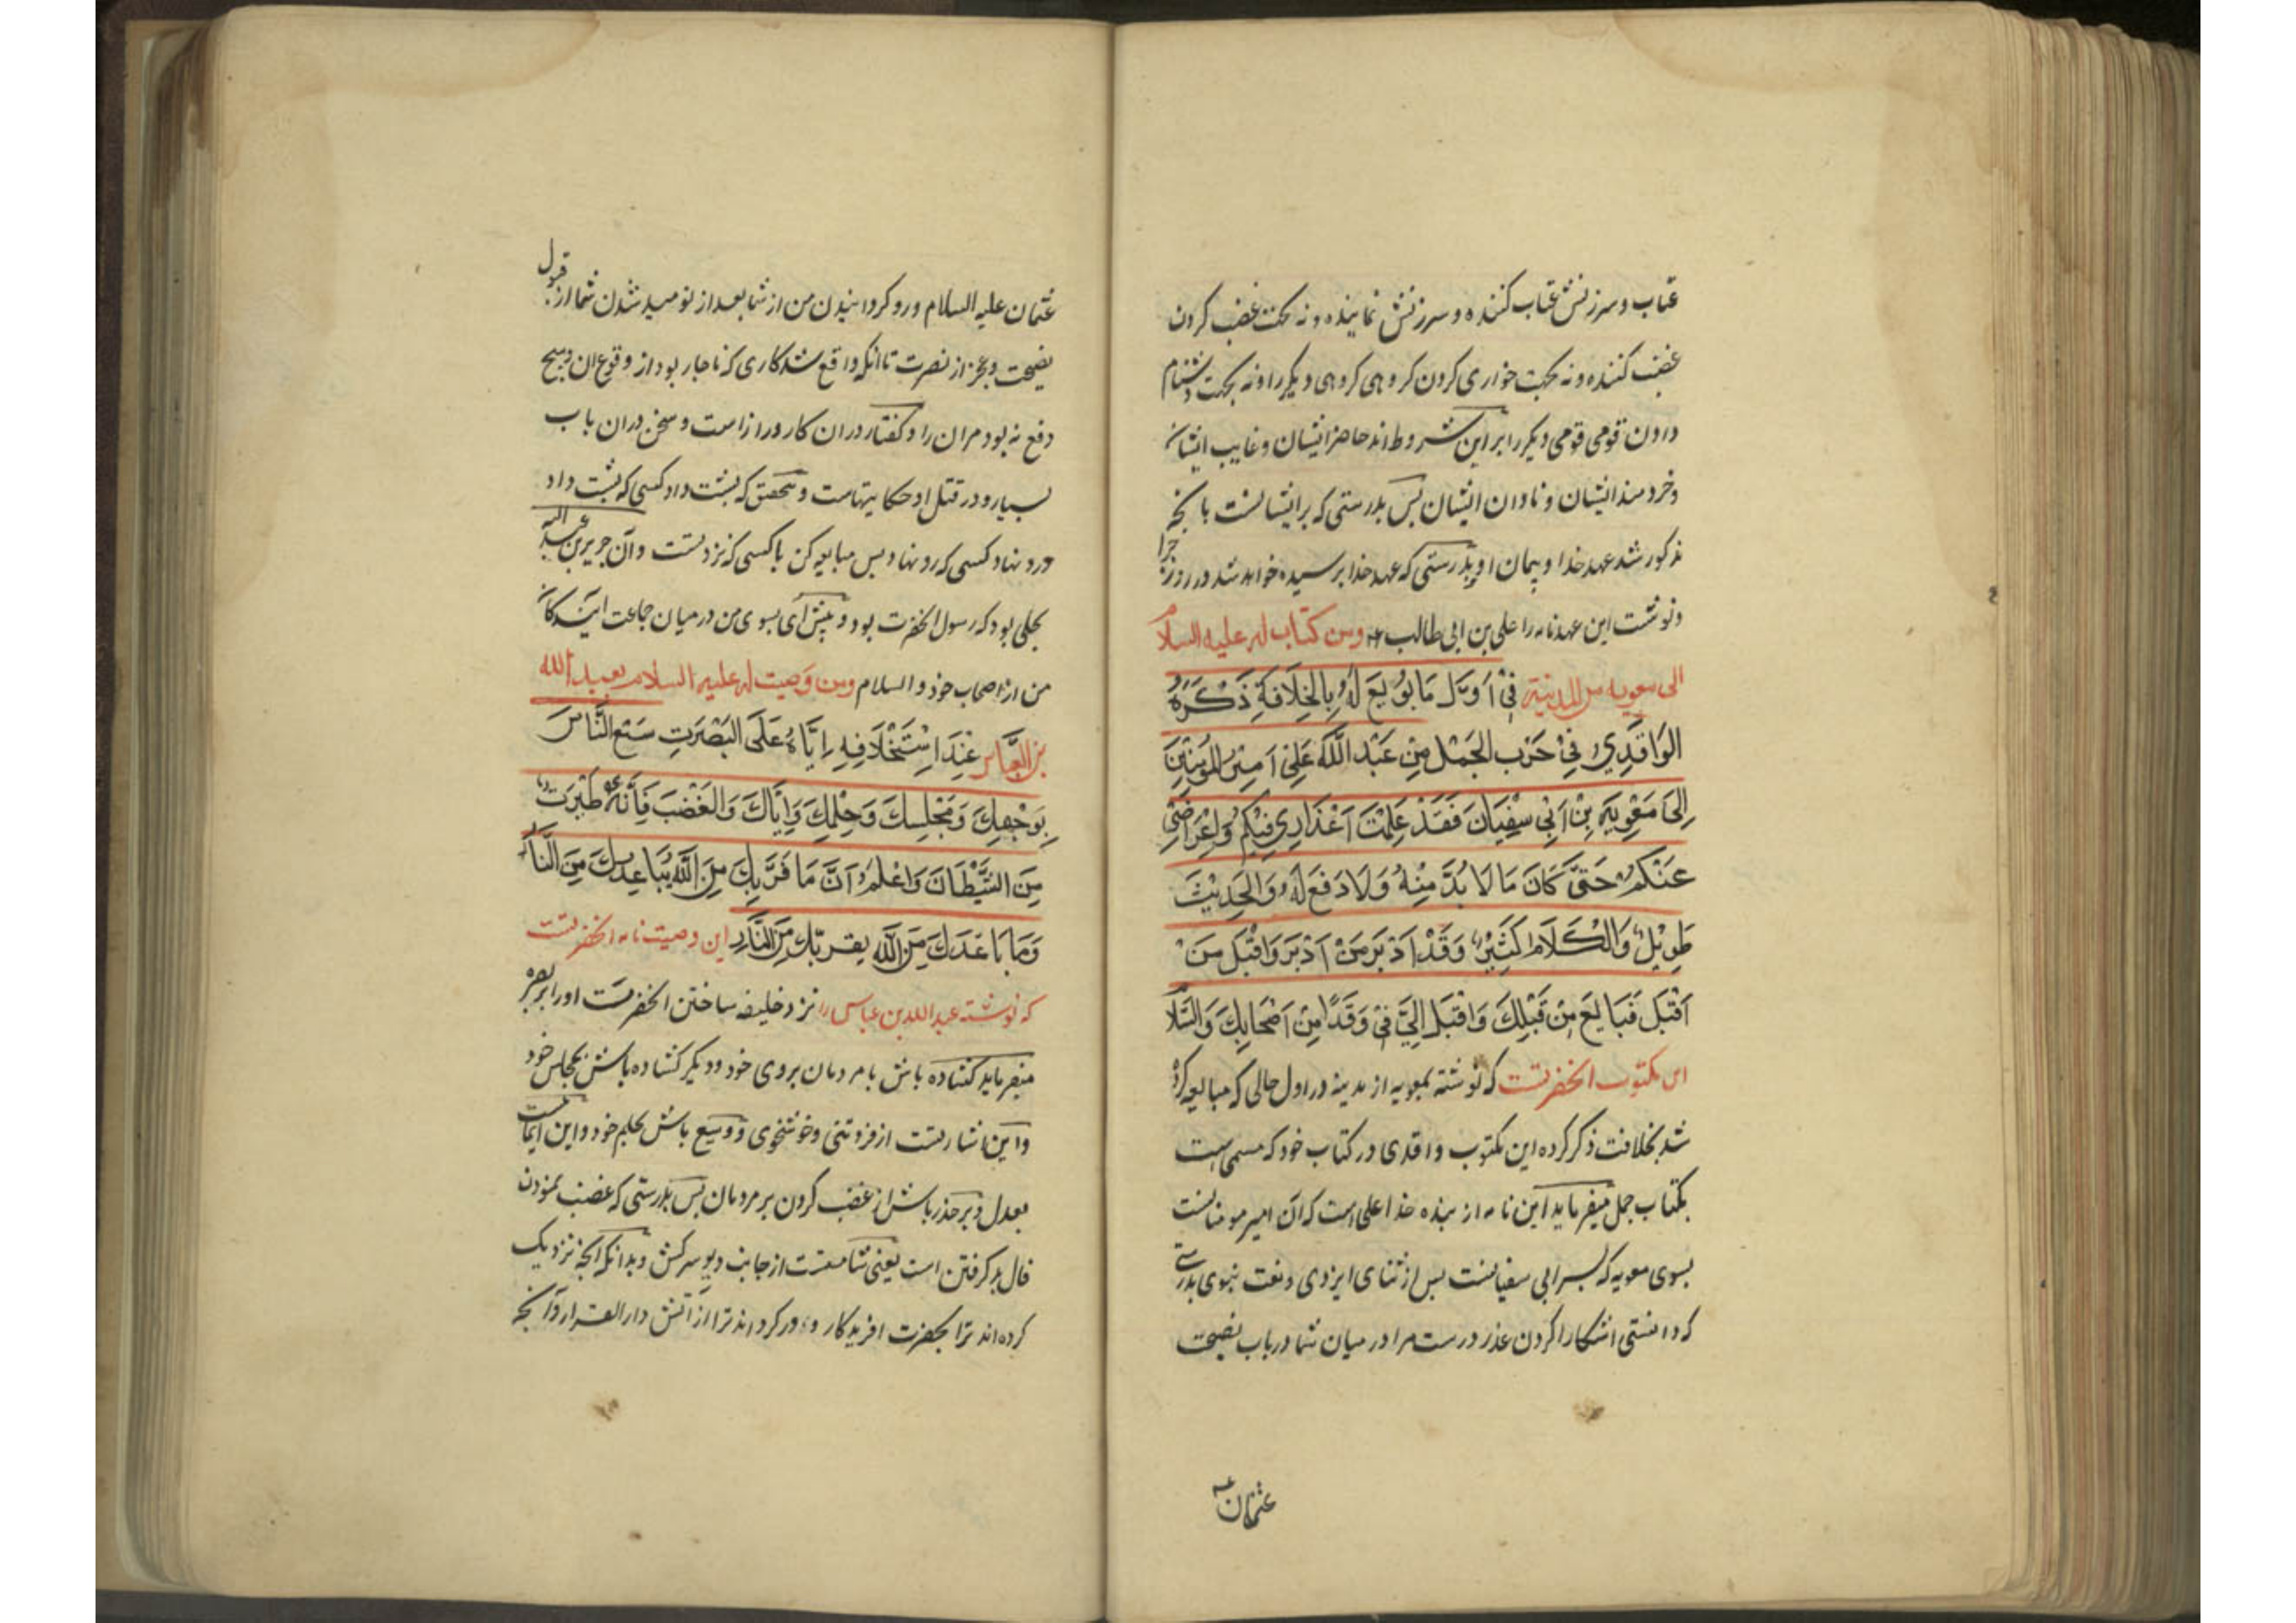 عتاب و سرزنش عتاب کننده و سرزنش نماینده و نه بجهت غضب کردن
غضب کننده و نه بجهت خواری کردن کروهی کروهی دیکر را و نه بجهت دشنام
دادن قومی قومی دیکر را بر این شروط اند حاضر ایشان و غایب ایشان
و خردمند ایشان و نادان ایشان پس بدرستی که بر ایشانست بانچه
مذکور شد عهد خدا و پیمان او و بدرستی که عهد خدا پرسیده خواهد شد در روز جزا
و نوشت این عهدنامه را علی بن ابی طالب ومن کتاب له علیه السلام
الی معویه من المدینة فِیْ اَوَّلِ مَا بُوْیِعَ لَهُ بِالْخِلَافَةِ ذَکَرَهُ
الوَاقِدِیُ فِیْ حَرْبِ الجَمَل مِنْ عَبْدِ اللّٰهِ عَلِیْ اَمِیْرِ المُؤمِنِیْنَ
اِلَی مَعْوِیَةَ بْنِ اَبِیْ سُفْیَانَ فَقَدْ عَلِمْتَ اَعْذَارِی فِیْکُمْ وَ اِعْرَاضِیْ
عَنْکُمْ حَتَّی کَانَ مَا لَا بُدَّ مِنْهُ وَلَا دَفْعَ لَهُ وَالْحَدِیْثُ
طَوِیْلٌ وَالْکَلَامُ کَثِیْرٌ وَقَدْ اَدْبَرَ مَنْ اَدْبَرَ وَاقْبَلَ مَنْ
اَقْبَلَ فَبَایِعْ مَنْ قِبَلِکَ وَاقْبَلْ اِلَیَّ فِیْ وَفْدًا مِنْ اَصْحَابِکَ وَالسَّلَامُ
این مکتوب انحضرتست که نوشته بمعویه از مدینه در اول حالی که مبایعه کرده
شد بخلافت ذکر کرده این مکتوب واقدی در کتاب خود که مسمی است
بکتاب جمل میفرماید این نامه از بنده خدا علی است که آن امیر مومنانست
بسوی معویه که پسر ابی سفیانست پس از ثنای ایزدی و نعت نبوی بدرستی
که دانستی اشکارا کردن عذر درست مرا در میان شما در باب نصیحت
عثمان
عثمان علیه السلام و رو کردانیدن من از شما بعد از نومید شدن شما از قبول
نصیحت و عجز از نصرت تا آنکه واقع شد کاری که ناچار بود از وقوع ان و هیچ
دفع نه بود مران را و کفتار دران کار دراز است و سخن دران باب
بسیار و در قتل او حکایتهاست و بتحقیق که پشت داد کسی که پشت داد
و رو نهاد کسی که رو نهاد پس مبایعه کن با کسی که نزد تست و آن جریر بن عبد الله
بجلی بود که رسول انحضرت بود و پیش آی بسوی من در میان جماعت ایندکان
من از اصحاب خود و السلام ومن وصیت له علیه السلام بعبد الله
بن العباس عِنْدَ اسْتِخْلَافِهِ اِیَّاهُ عَلَی البَصْرَتِ سَعِ النَّاسَ
بِوَجْهِکَ وَمَجْلِسِکَ وَحِلْمِکَ وَاِیَّاکَ وَالْغَضَبَ فَاِنَّهُ طَیْرَتٌ
مِنَ الشَّیْطَانِ وَاعْلَمْ اَنَّ مَا قَرَّبَکَ مِنَ اللّٰهِ یُبَاعِدُکَ مِنَ النَّارِ
وَمَا بَاعَدَکَ مِنَ اللّٰهِ یقربک مِنَ النَّارِ این وصیت نامه انحضرتست
که نوشته عبد الله بن عباس را نزد خلیفه ساختن انحضرت او را بر بصره
میفرماید کشاده باش با مردمان بروی خود و دیکر کشاده باش بمجلس خود
و این اشارتست از فروتنی و خوشخوی و وسیع باش بحلم خود و این ایماست
بعدل و بر حذر باش از غضب کردن بر مردمان پس بدرستی که غضب نمودن
فال بد کرفتن است یعنی از جانب دیو سرکش و بدانکه انچه نزدیک
کرده اند ترا بحضرت افریدکار و دور کرده اند ترا از آتش دار القرار و آنچه